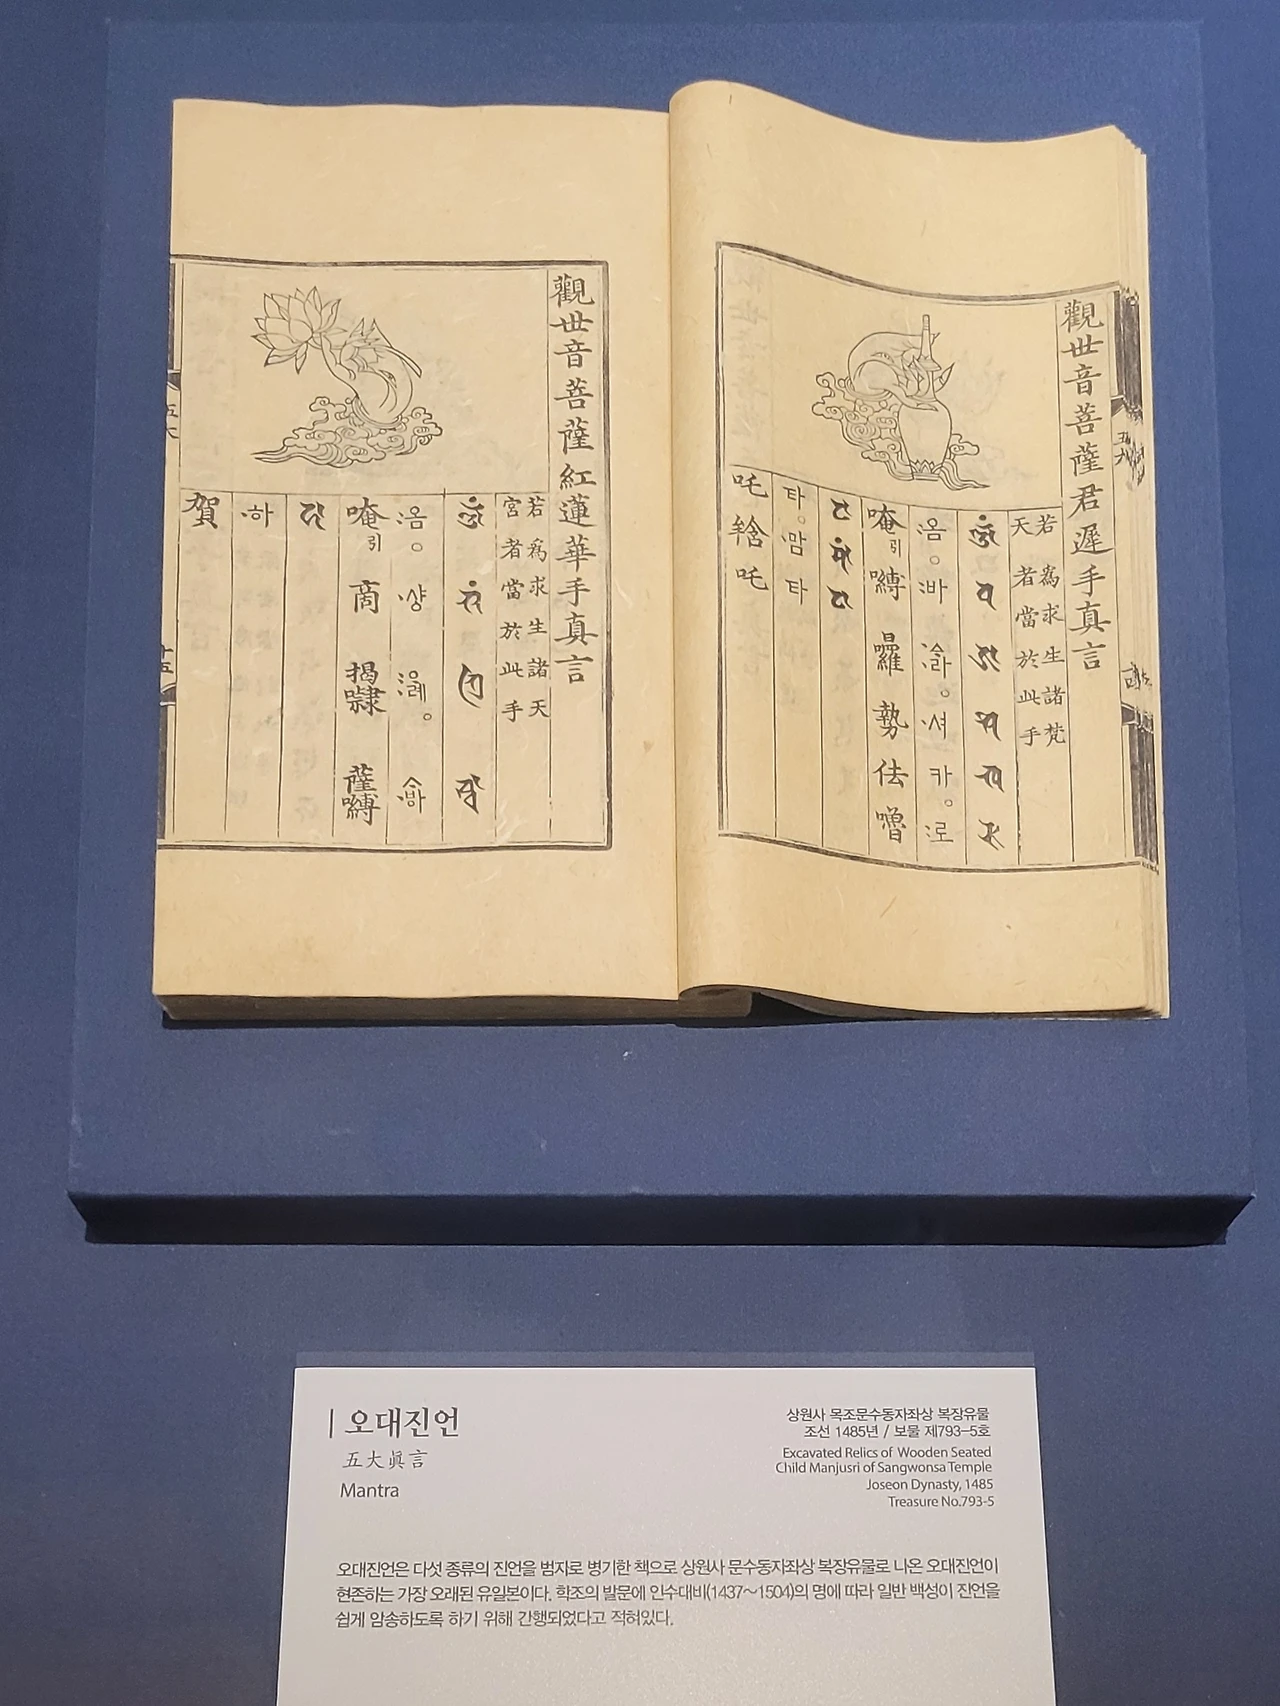 觀世音菩薩君遲手真言
若爲求生諸梵
天者當於此手
옴。바 。셔카。로
唵引嚩 勢佉嚕
타。맘타
吒𤚥吒
觀世音菩薩紅蓮華手真言
若爲求生諸天
宮者當於此手
옴。샹
唵引商揭 薩嚩
하
賀
오대진언
五大眞言
Mantra
상원사 목조문수동자좌상 복장유물
조선 1485년 / 보물 제793-5호
Excavated Relics of Wooden Seated
Child Manjusri of Sangwonsa Temple
Joseon Dynasty, 1485
Treasure No.793-5
오대진언은 다섯 종류의 진언을 범자로 병기한 책으로 상원사 문수동자좌상 복장유물로 나온 오대진언이
현존하는 가장 오래된 유일본이다. 학조의 발문에 인수대비(1437~1504)의 명에 따라 일반 백성이 진언을
쉽게 암송하도록 하기 위해 간행되었다고 적혀있다.